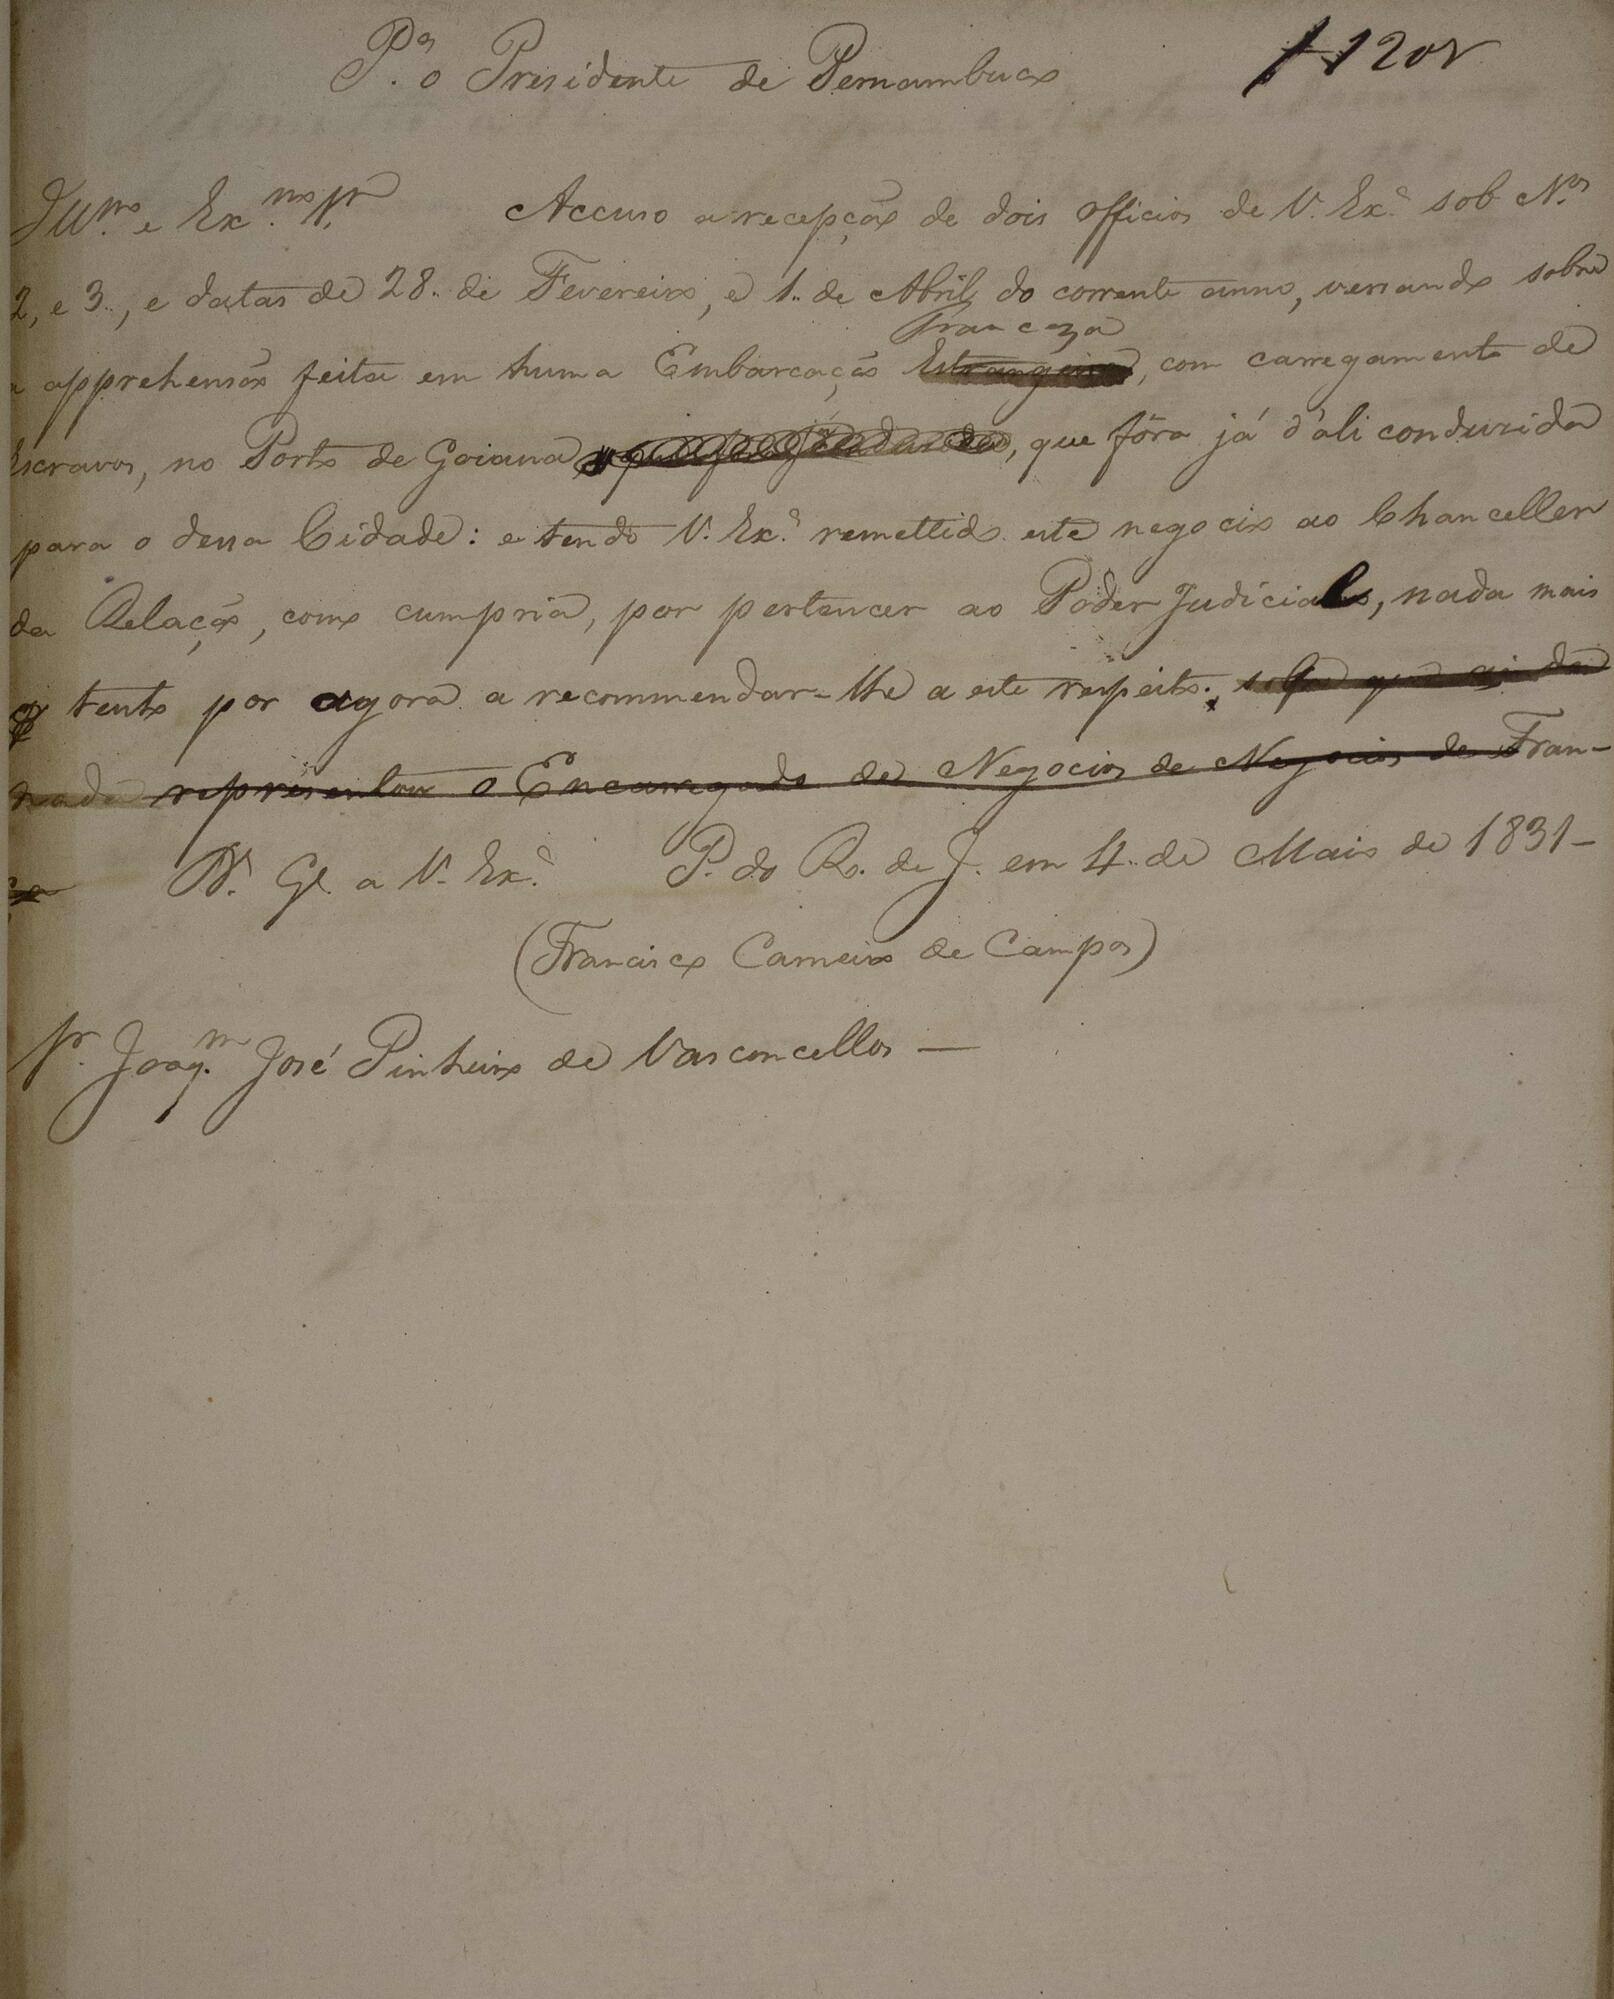 P.ª o Presidente de Pernambuco
120v
Ill.mo e Ex.mo Sr. Accuso a recepção de dois officios de V. Ex.ª sob N.os
2, e 3, e datas de 28 de Fevereiro, e 1. de Abril do corrente anno, versando sobre
Franceza
a apprehensão feita em huma Embarcação Estrangeira, com carregamento de
Escravos, no Porto de Goiana, que fôra já d'ali conduzida
para o dessa Cidade: e tendo V. Ex.ª remettido este negocio ao Chanceller
da Relação, como cumpria, por pertencer ao Poder Judicial, nada mais
tenho por agora a recommendar-lhe a este respeito. que ainda
nada representou o Encarregado de Negocios de Negocios de Fran-
ça D. G.e a V. Ex.ª P. do R. de J. em 4 de Maio de 1831-
(Francisco Carneiro de Campos)
Sr. Joaq.m José Pinheiro de Vasconcellos —